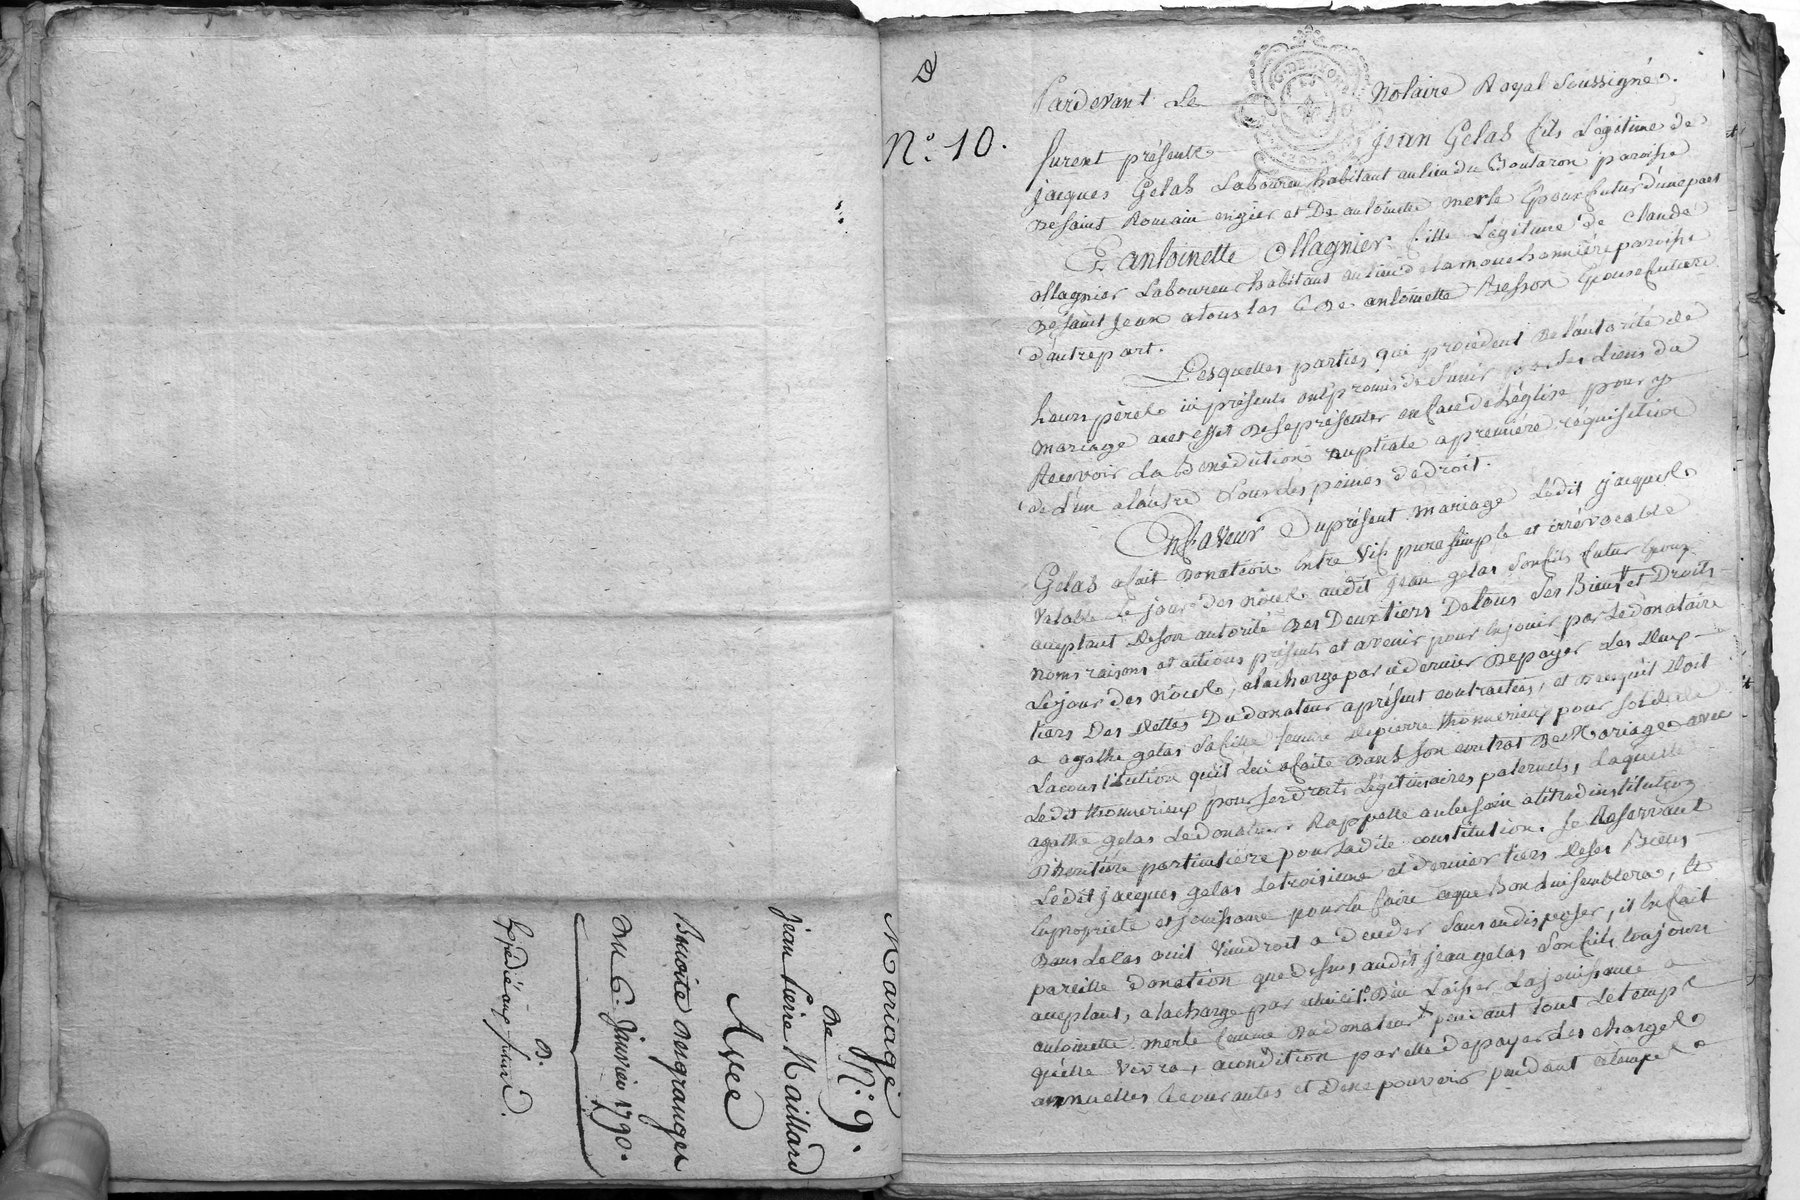 Mariage N.º 9.
De
Jean Pierre Maillard
Avec
Benoite Desgranges
Du 6. Janvier 1790.
D.
N.º 10.
G. DE LYON
Pardevant Le Notaire Royal Soussigné.
furent présents Jean Gelas fils Légitime de
Jacques Gelas Laboureur habitant au lieu du Coutaron paroisse
De saint Romain en gier et De antoinette merle Epoux futur d'une part
Et antoinette Ollagnier fille Légitime de Claude
Ollagnier Laboureur habitant au lieu de la mouchonnière paroisse
De saint Jean a touslas & De antoinette Besson Epouse future
d'autre part.
Lesquelles parties qui procedent De l'autorité de
Leurs pères ici présents ont promis de s'unir par les Liens du
mariage a cet effet De se présenter en face de L'église pour y
Recevoir La Bénédiction nuptiale a première réquisition
de L'un a L'autre Sous les peines de droit.
En faveur Du présent mariage Ledit Jacques
Gelas a fait Donation Entre Vifs pure simple et irrévocable
Valable Le jour des nôces audit Jean gelas Son fils futur Epoux
acceptant De son autorité Des Deux tiers De tous Ses Biens et Droits
noms raisons et actions présents et avenir pour En jouir par Le donataire
Le jour des nôces, a la charge par ce dernier De payer Les Deux
tiers Des Dettes Du donateur a présent contractées, et De ce qu'il Doit
a agathe gelas Sa fille femme De pierre thonnerieux pour Solde de
La constitution qu'il Lui a faite Dans Son contrat De Mariage avec
Ledit thonnerieux pour Ses droits Légitimaires paternels, Laquelle
agathe gelas Le donateur Rappelle au besoin a titre d'institution
D'heritière particulière pour Ladite constitution. Se Reservant
Ledit Jacques gelas Le troisieme et dernier tiers De ses Biens
En propriété et jouissance pour En faire ce que Bon Lui semblera, &
Dans Le cas ou il Viendroit a Deceder Sans en disposer, il En fait
pareille donation que dessus audit Jean gelas Son fils toujours
acceptant, a la charge par celui ci D'en Laisser La jouissance a
antoinette merle femme Du donateur pendant tout Le temps
qu'elle Vivra, a condition par elle de payer Les charges
annuelles Et courantes et De ne pouvoir pendant ce temps